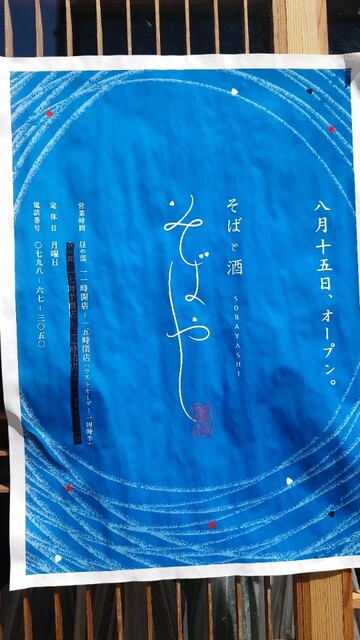 八月十五日、オープン。
そばと酒
SOBAYASHI
そばやし
営業時間 昼の部 一一時開店－一五時閉店（ラストオーダー 一四時半）
定休日 月曜日
電話番号 〇七九八－六七－三〇五〇